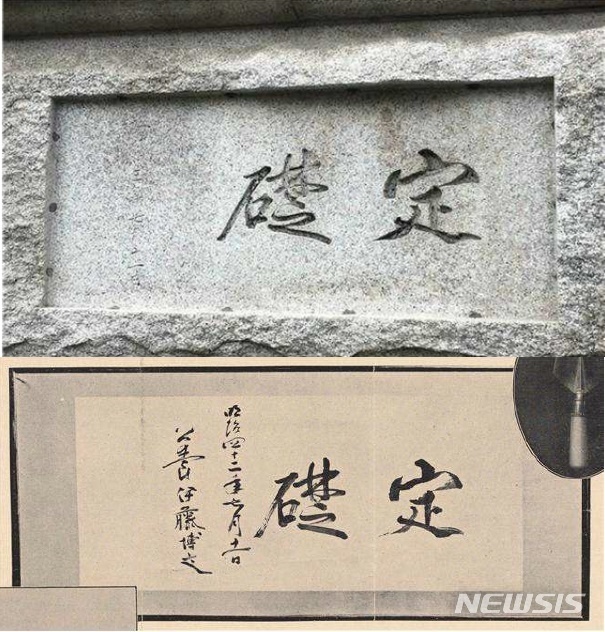 定礎
定礎
明治四十二年七月十一日
公爵伊藤博文
NEWSIS